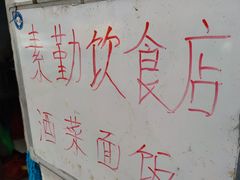 素勤饮食店
酒菜面饭